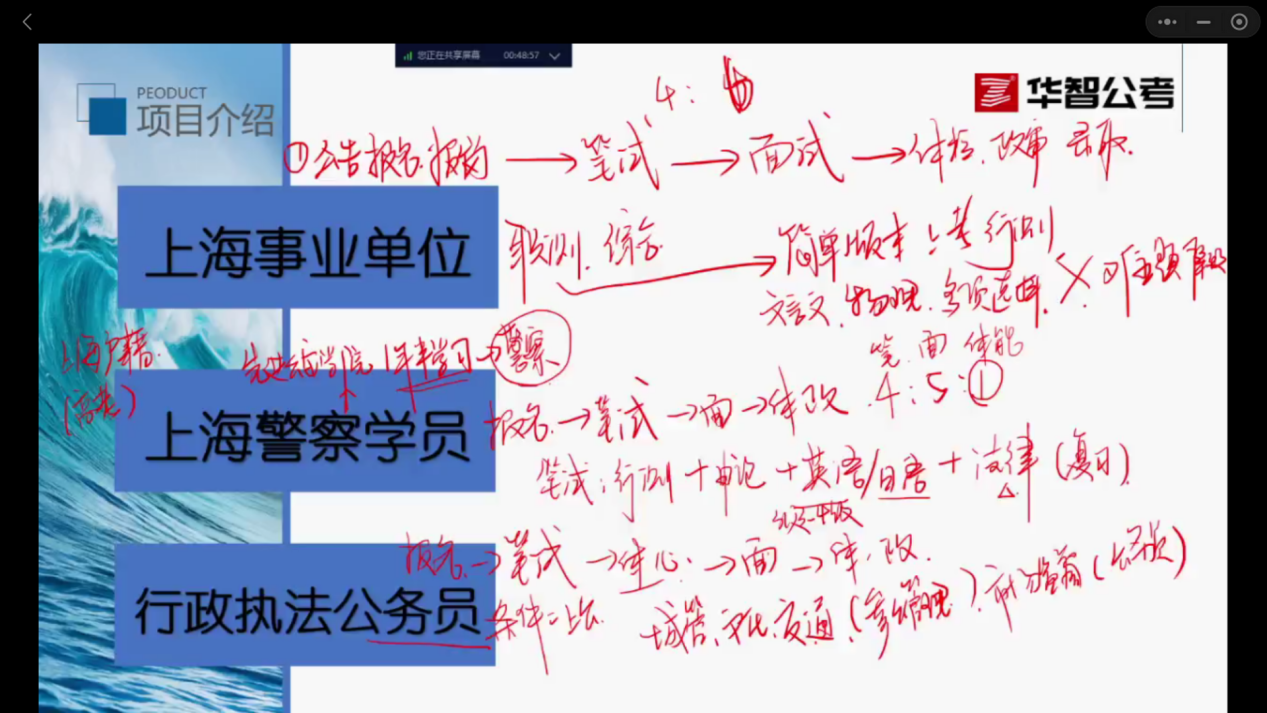 您正在共享屏幕 00:48:57
PEODUCT
项目介绍
华智公考
4:
①公告报名.报岗 → 笔试 → 面试 → 体检.政审 录取.
上海事业单位
职测.综合 → 简单版本:考行测
文言文.物理.多项选择.
上海户籍.
1年半学习→警察
笔.面 体能
4:5:①
上海警察学员
报名→笔试→面→体政
笔试:行测+申论+英语/日语+法律(复习)
报名→笔试→体心→面→体.政.
行政执法公务员
条件=上会.
城管.文化.交通.(参编管理)